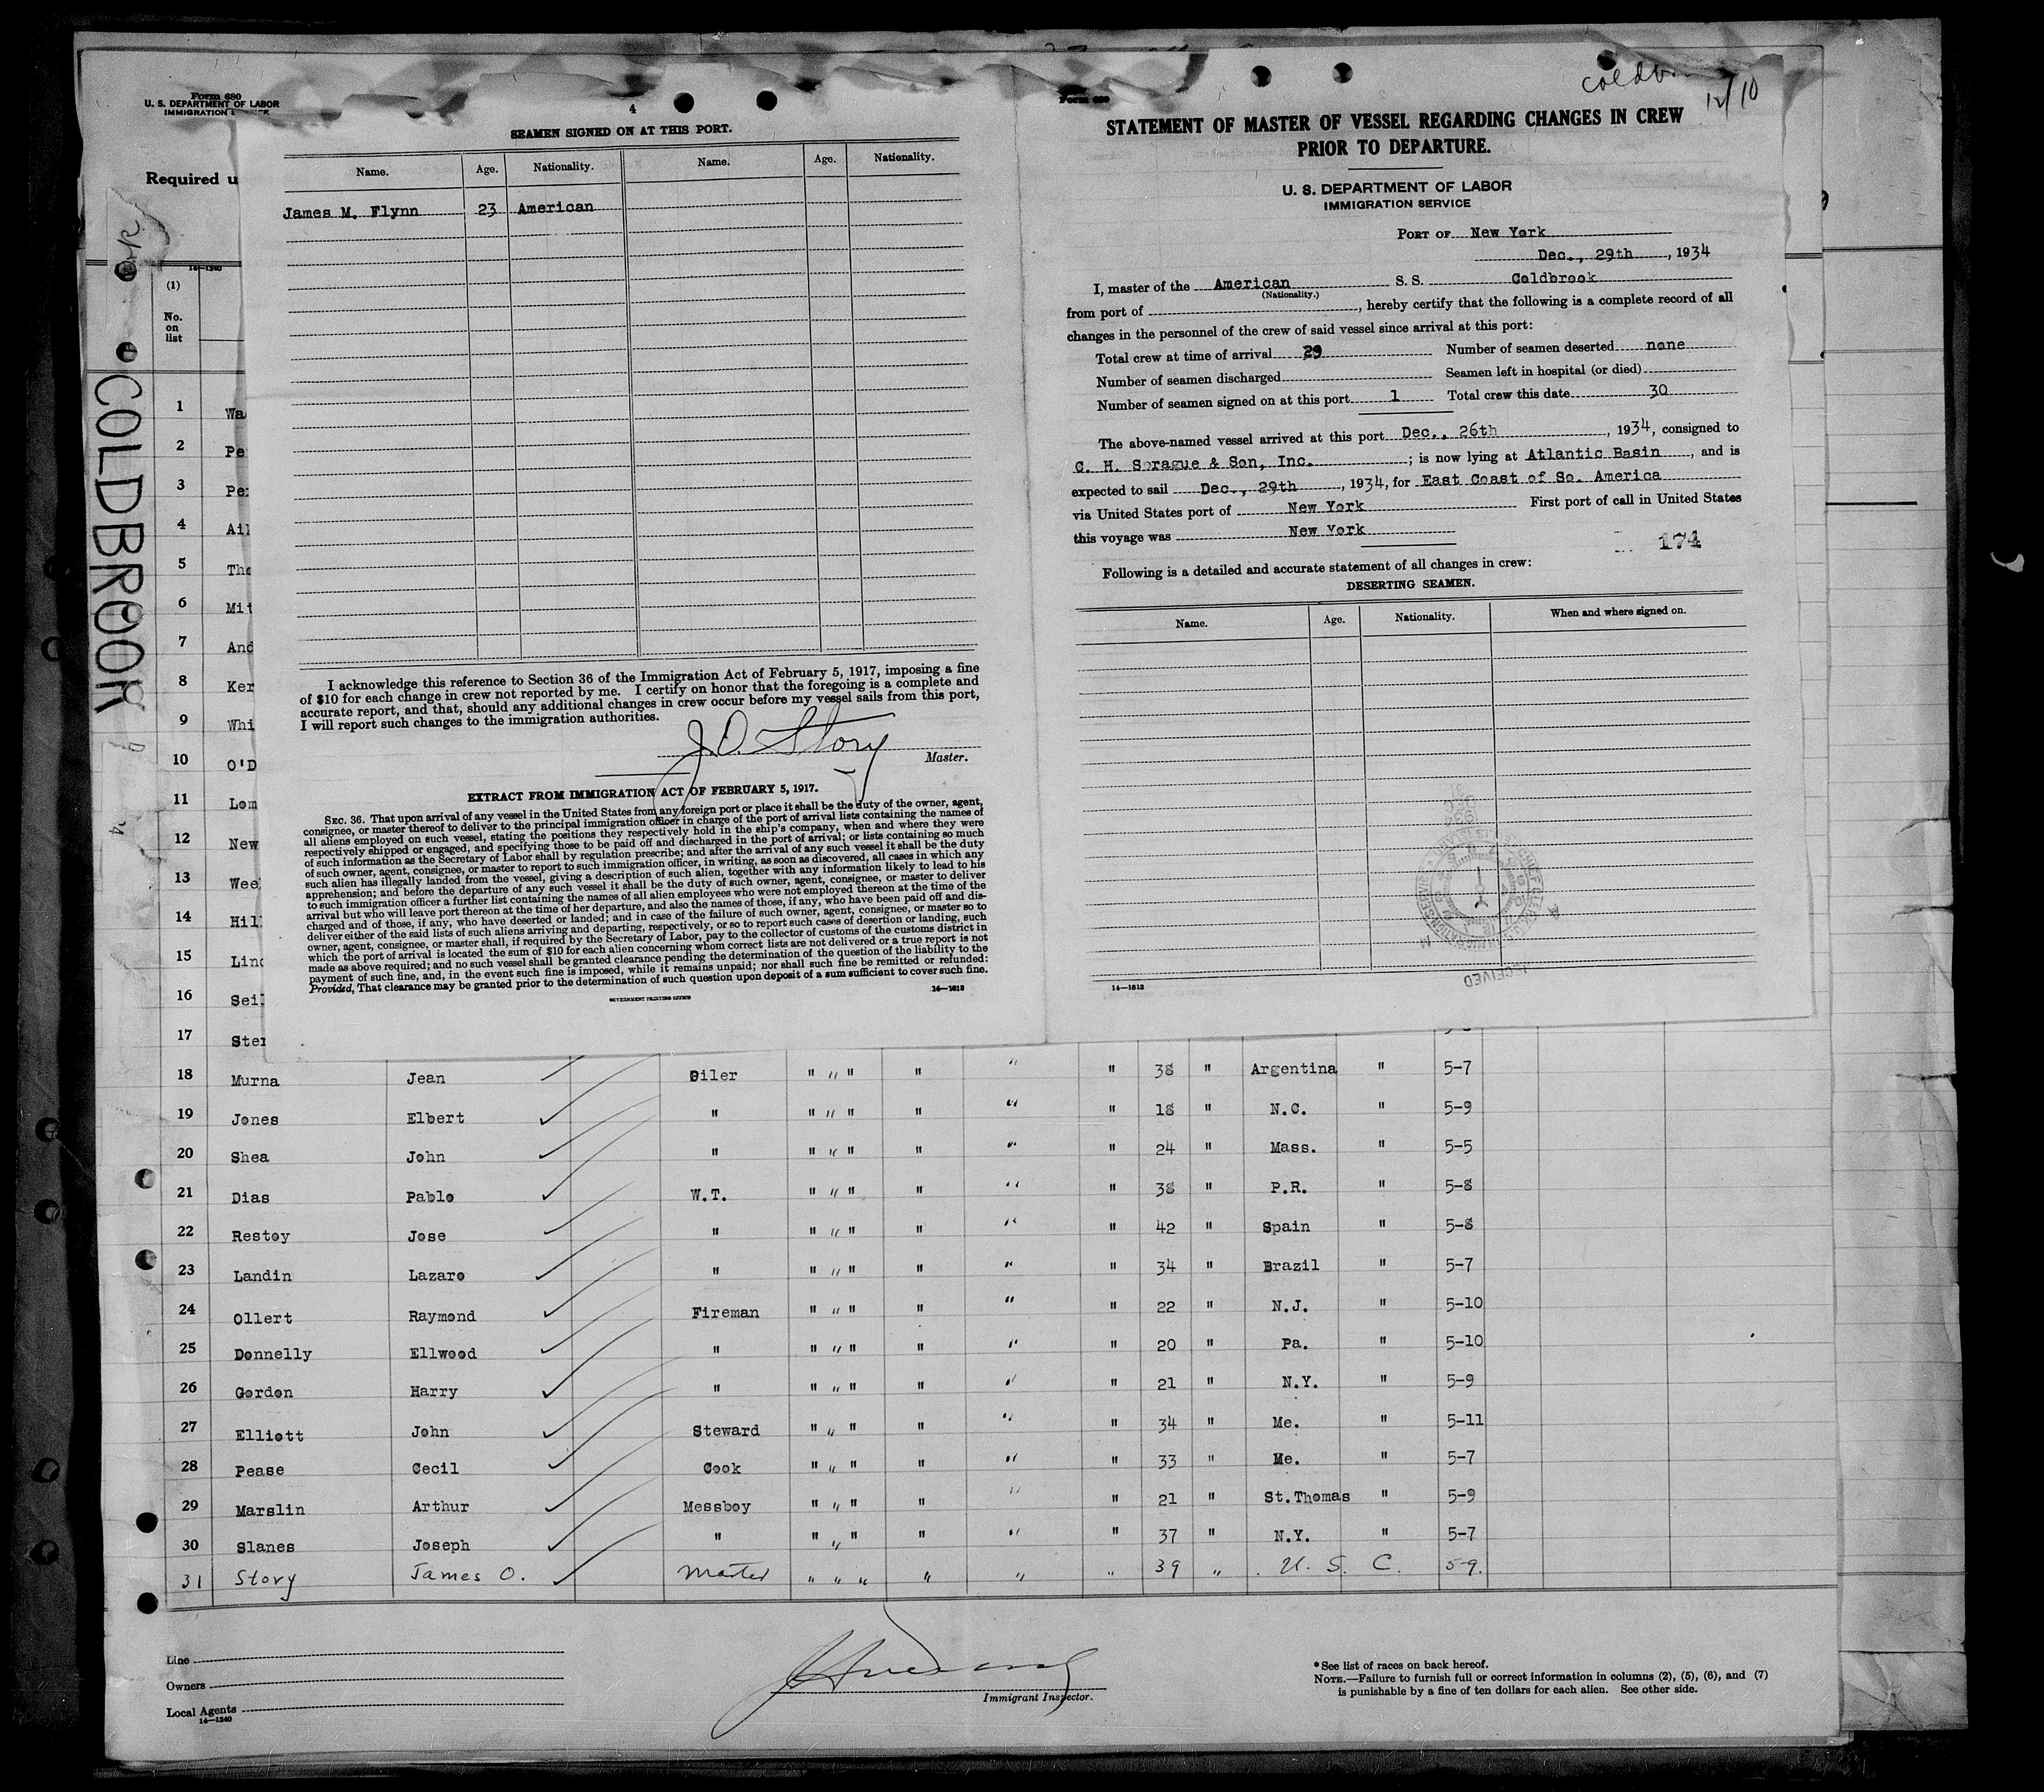 Form 680
U. S. DEPARTMENT OF LABOR
IMMIGRATION
Required u
14—1240
(1)
No.
on
list
COLDBROOK
1 Wa
2 Pe
3 Per
4 Ail
5 Tho
6 Mit
7 And
8 Ker
9 Whi
10 O'D
11 Lom
12 New
13 Wee
14 Hil
15 Lind
16 Sei
17 Ster
4
SEAMEN SIGNED ON AT THIS PORT.
Name. Age. Nationality. Name. Age. Nationality.
James M. Flynn 23 American
I acknowledge this reference to Section 36 of the Immigration Act of February 5, 1917, imposing a fine
of $10 for each change in crew not reported by me. I certify on honor that the foregoing is a complete and
accurate report, and that, should any additional changes in crew occur before my vessel sails from this port,
I will report such changes to the immigration authorities.
J.O. Story
Master.
EXTRACT FROM IMMIGRATION ACT OF FEBRUARY 5, 1917.
SEC. 36. That upon arrival of any vessel in the United States from any foreign port or place it shall be the duty of the owner, agent,
consignee, or master thereof to deliver to the principal immigration officer in charge of the port of arrival lists containing the names of
all aliens employed on such vessel, stating the positions they respectively hold in the ship's company, when and where they were
respectively shipped or engaged, and specifying those to be paid off and discharged in the port of arrival; or lists containing so much
of such information as the Secretary of Labor shall by regulation prescribe; and after the arrival of any such vessel it shall be the duty
of such owner, agent, consignee, or master to report to such immigration officer, in writing, as soon as discovered, all cases in which any
such alien has illegally landed from the vessel, giving a description of such alien, together with any information likely to lead to his
apprehension; and before the departure of any such vessel it shall be the duty of such owner, agent, consignee, or master to deliver
to such immigration officer a further list containing the names of all alien employees who were not employed thereon at the time of the
arrival but who will leave port thereon at the time of her departure, and also the names of those, if any, who have been paid off and dis-
charged and of those, if any, who have deserted or landed; and in case of the failure of such owner, agent, consignee, or master so to
deliver either of the said lists of such aliens arriving and departing, respectively, or so to report such cases of desertion or landing, such
owner, agent, consignee, or master shall, if required by the Secretary of Labor, pay to the collector of customs of the customs district in
which the port of arrival is located the sum of $10 for each alien concerning whom correct lists are not delivered or a true report is not
made as above required; and no such vessel shall be granted clearance pending the determination of the question of the liability to the
payment of such fine, and, in the event such fine is imposed, while it remains unpaid; nor shall such fine be remitted or refunded:
Provided, That clearance may be granted prior to the determination of such question upon deposit of a sum sufficient to cover such fine.
GOVERNMENT PRINTING OFFICE 14—1613
12/10
Form 680
STATEMENT OF MASTER OF VESSEL REGARDING CHANGES IN CREW
PRIOR TO DEPARTURE.
U. S. DEPARTMENT OF LABOR
IMMIGRATION SERVICE
PORT OF New York
Dec., 29th, 1934
I, master of the American S. S. Coldbrook
(Nationality.)
from port of , hereby certify that the following is a complete record of all
changes in the personnel of the crew of said vessel since arrival at this port:
Total crew at time of arrival 29 Number of seamen deserted none
Number of seamen discharged Seamen left in hospital (or died)
Number of seamen signed on at this port 1 Total crew this date 30
The above-named vessel arrived at this port Dec., 26th, 1934, consigned to
C. H. Sprague & Son, Inc. ; is now lying at Atlantic Basin, and is
expected to sail Dec., 29th, 1934, for East Coast of So. America
via United States port of New York First port of call in United States
this voyage was New York
174
Following is a detailed and accurate statement of all changes in crew:
DESERTING SEAMEN.
Name. Age. Nationality. When and where signed on.
RECEIVED
14—1613
18 Murna Jean Oiler " " " " " " 38 " Argentina " 5-7
19 Jones Elbert " " " " " " " 18 " N.C. " 5-9
20 Shea John " " " " " " " 24 " Mass. " 5-5
21 Dias Pablo W.T. " " " " " " 38 " P.R. " 5-8
22 Restoy Jose " " " " " " " 42 " Spain " 5-8
23 Landin Lazaro " " " " " " " 34 " Brazil " 5-7
24 Ollert Raymond Fireman " " " " " " 22 " N.J. " 5-10
25 Donnelly Ellwood " " " " " " " 20 " Pa. " 5-10
26 Gordon Harry " " " " " " " 21 " N.Y. " 5-9
27 Elliott John Steward " " " " " " 34 " Me. " 5-11
28 Pease Cecil Cook " " " " " " 33 " Me. " 5-7
29 Marslin Arthur Messboy " " " " " " 21 " St.Thomas " 5-9
30 Slanes Joseph " " " " " " " 37 " N.Y. " 5-7
31 Story James O. Master " " " " " " 39 " U. S. C. 59.
Line
Owners
Local Agents
14—1240
Immigrant Inspector.
* See list of races on back hereof.
NOTE.—Failure to furnish full or correct information in columns (2), (5), (6), and (7)
is punishable by a fine of ten dollars for each alien. See other side.